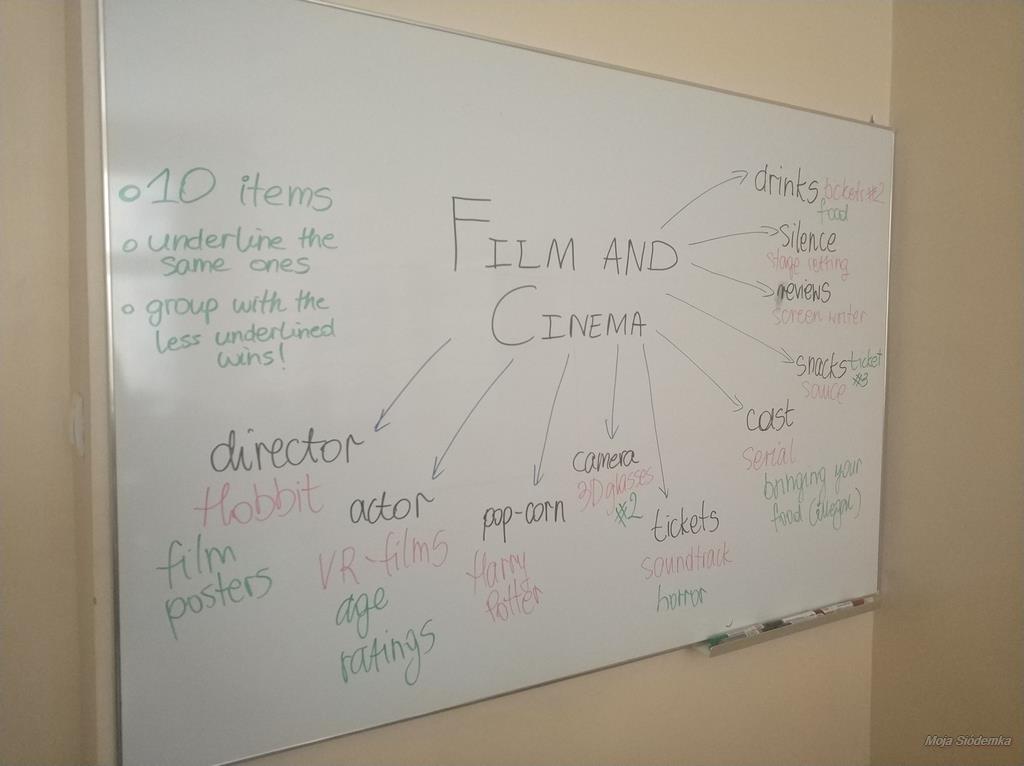 10 items
underline the
same ones
group with the
less underlined
wins!
FILM AND
CINEMA
drinks tickets #2
food
silence
stage setting
reviews
screen writer
snacks ticket
#3
sauce
cast
serial
bringing your
food (illegal)
director
Hobbit
film
posters
actor
VR-films
age
ratings
pop-corn
Harry
Potter
camera
3D glasses
#2
tickets
soundtrack
horror
Moja Siódemka